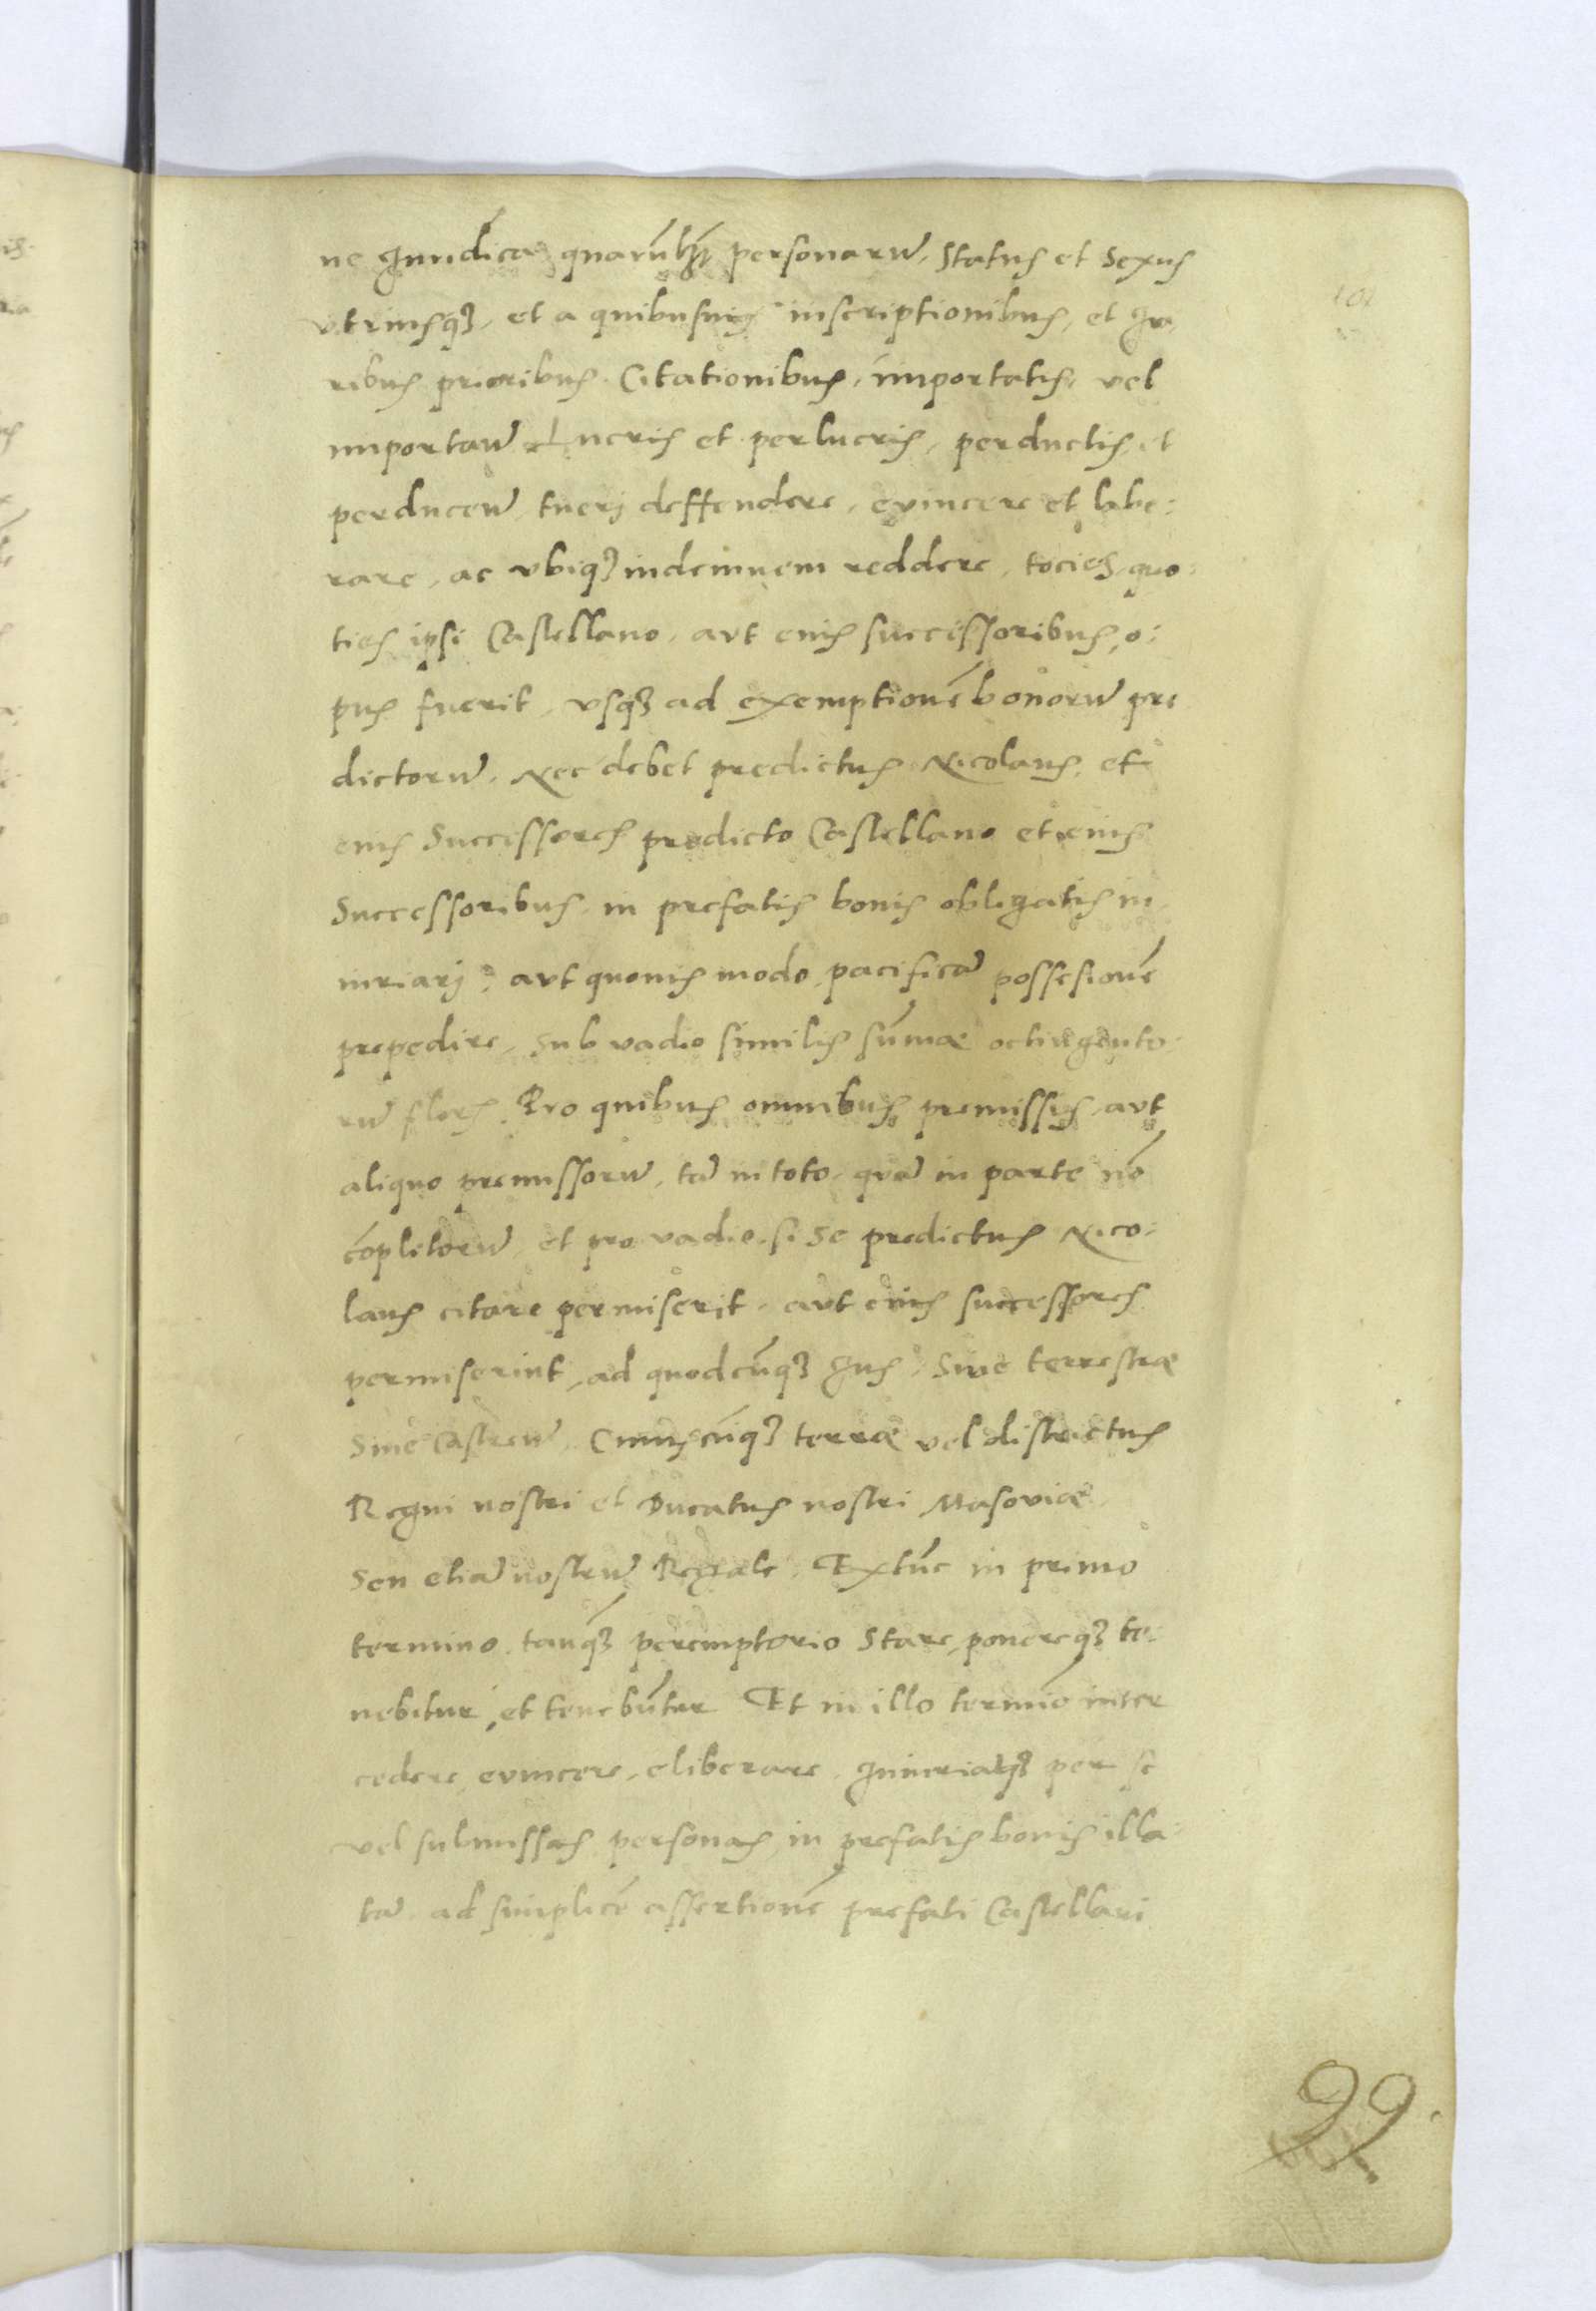 ne Juridica, quarūlibet personarū, Status et Sexus
vtriusq3, et a quibusuis inscriptionibus, et Ju
ribus prioribus Citationibus, importatis, vel
importan̄ Lucris et perlucris, perductis, et
perducen̄, tuerj deffendere, euincere et libe:
rare, ac vbiq3 indemnem reddere, tocies, quo:
ties ipsi Castellano, aut eius successoribus, o:
pus fuerit, vsq3 ad exemptionē bonorū pre
dictorū. Nec debet predictus Nicolaus, et
eius Successores predicto Castellano et eius
Successoribus in prefatis bonis obligatis in
iuriarj, aut quouis modo pacificā possesionē
prepedire, sub vadio similis sūmæ octingento:
rū flor͂. Pro quibus omnibus premissis, aut
aliquo premissorū, tā in toto, quā in parte nō
cōpletorū, et pro vadio, si se predictus Nico:
laus citare permiserit, aut eius successores
permiserint, ad quodcūq3 Jus, Siue terrestræ
Siue Castren̄, Cuiuscūq3 terræ vel districtus
Regni nostri et Ducatus nostri Masoviæ,
Seu etiā nostrū Regale, Extūc in primo
termino, tanq3 peremptorio Stare, parereq3 te:
nebitur, et tenebūtur Et in illo termīo inter
cedere, euincere, eliberare, Iniuriaq3 per se
vel submissas personas, in prefatis bonis illa:
tā, ad simplicē assertionē prefati Castellani
101
99.